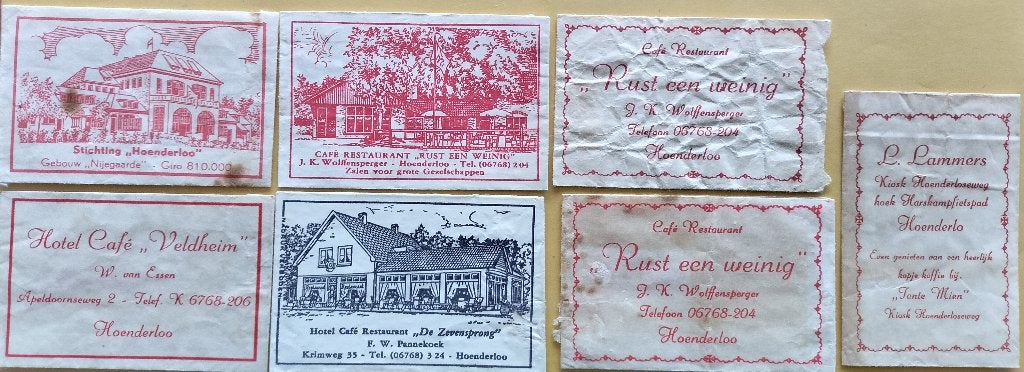 Stichting „Hoenderloo"
Gebouw „Nijegaarde" - Giro 810.000
CAFÉ RESTAURANT „RUST EEN WEINIG"
J. K. Wolffensperger - Hoenderloo - Tel. (06768) 204
Zalen voor grote Gezelschappen
Café Restaurant
„Rust een weinig"
J. K. Wolffensperger
Telefoon 06768-204
Hoenderloo
L. Lammers
Kiosk Hoenderloseweg
hoek Harskampfietspad
Hoenderlo
Even genieten van een heerlijk
kopje koffie bij.
„Tante Mien"
Kiosk Hoenderloseweg
Hotel Café „Veldheim"
W. van Essen
Apeldoornseweg 2 - Telef. K 6768-206
Hoenderloo
Hotel Café Restaurant „De Zevensprong"
F. W. Pannekoek
Krimweg 35 - Tel. (06768) 3 24 - Hoenderloo
Café Restaurant
„Rust een weinig"
J. K. Wolffensperger
Telefoon 06768-204
Hoenderloo